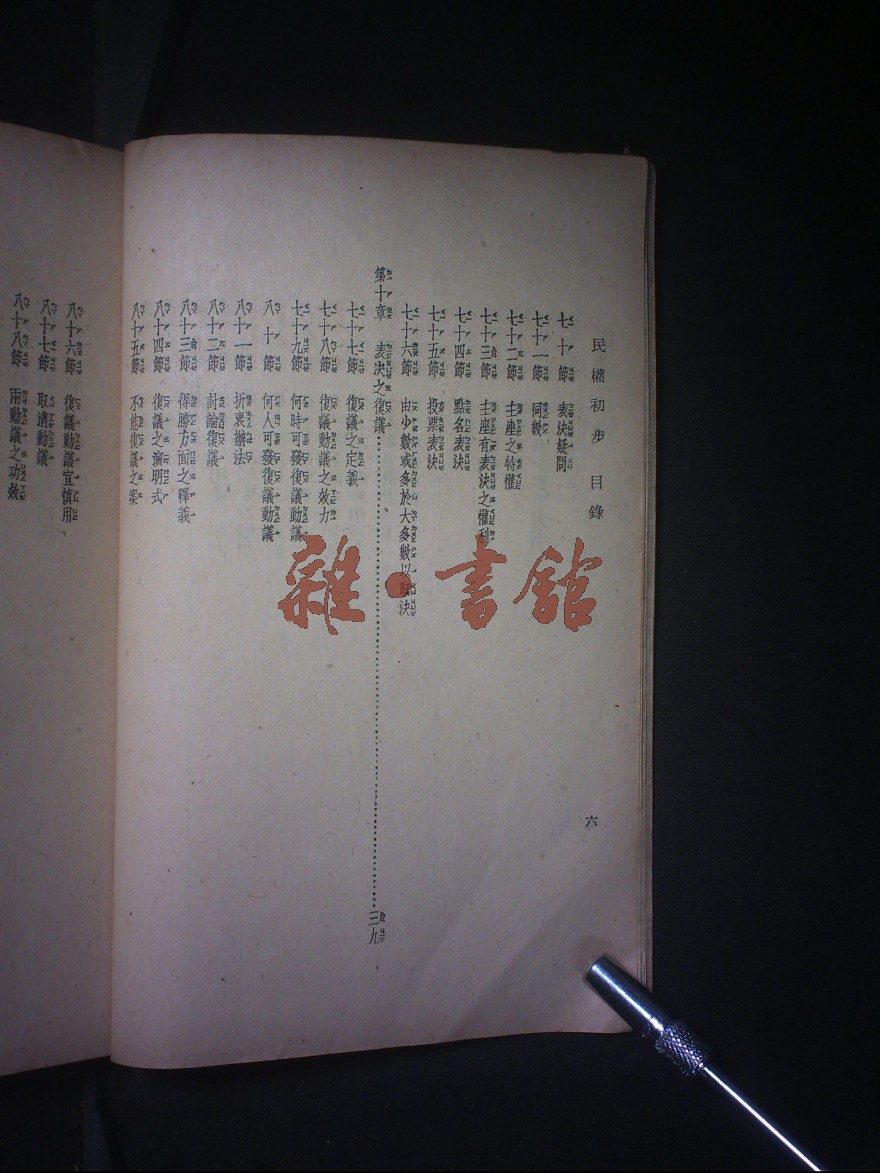 民權初步 目錄
六
七十節 表決疑問
七十一節 同數
七十二節 主座之特權
七十三節 主座有表決之權利
七十四節 點名表決
七十五節 投票表決
七十六節 由少數或多於大多數以取決
第十章 表決之復議⋯⋯⋯⋯三九
七十七節 復議之定義
七十八節 復議動議之效力
七十九節 何時可發復議動議
八十節 何人可發復議動議
八十一節 折衷辦法
八十二節 討論復議
八十三節 得勝方面之釋義
八十四節 復議之演明式
八十五節 不能復議之案
八十六節 復議動議宜慎用
八十七節 取消動議
八十八節 兩動議之功效
雜·書館